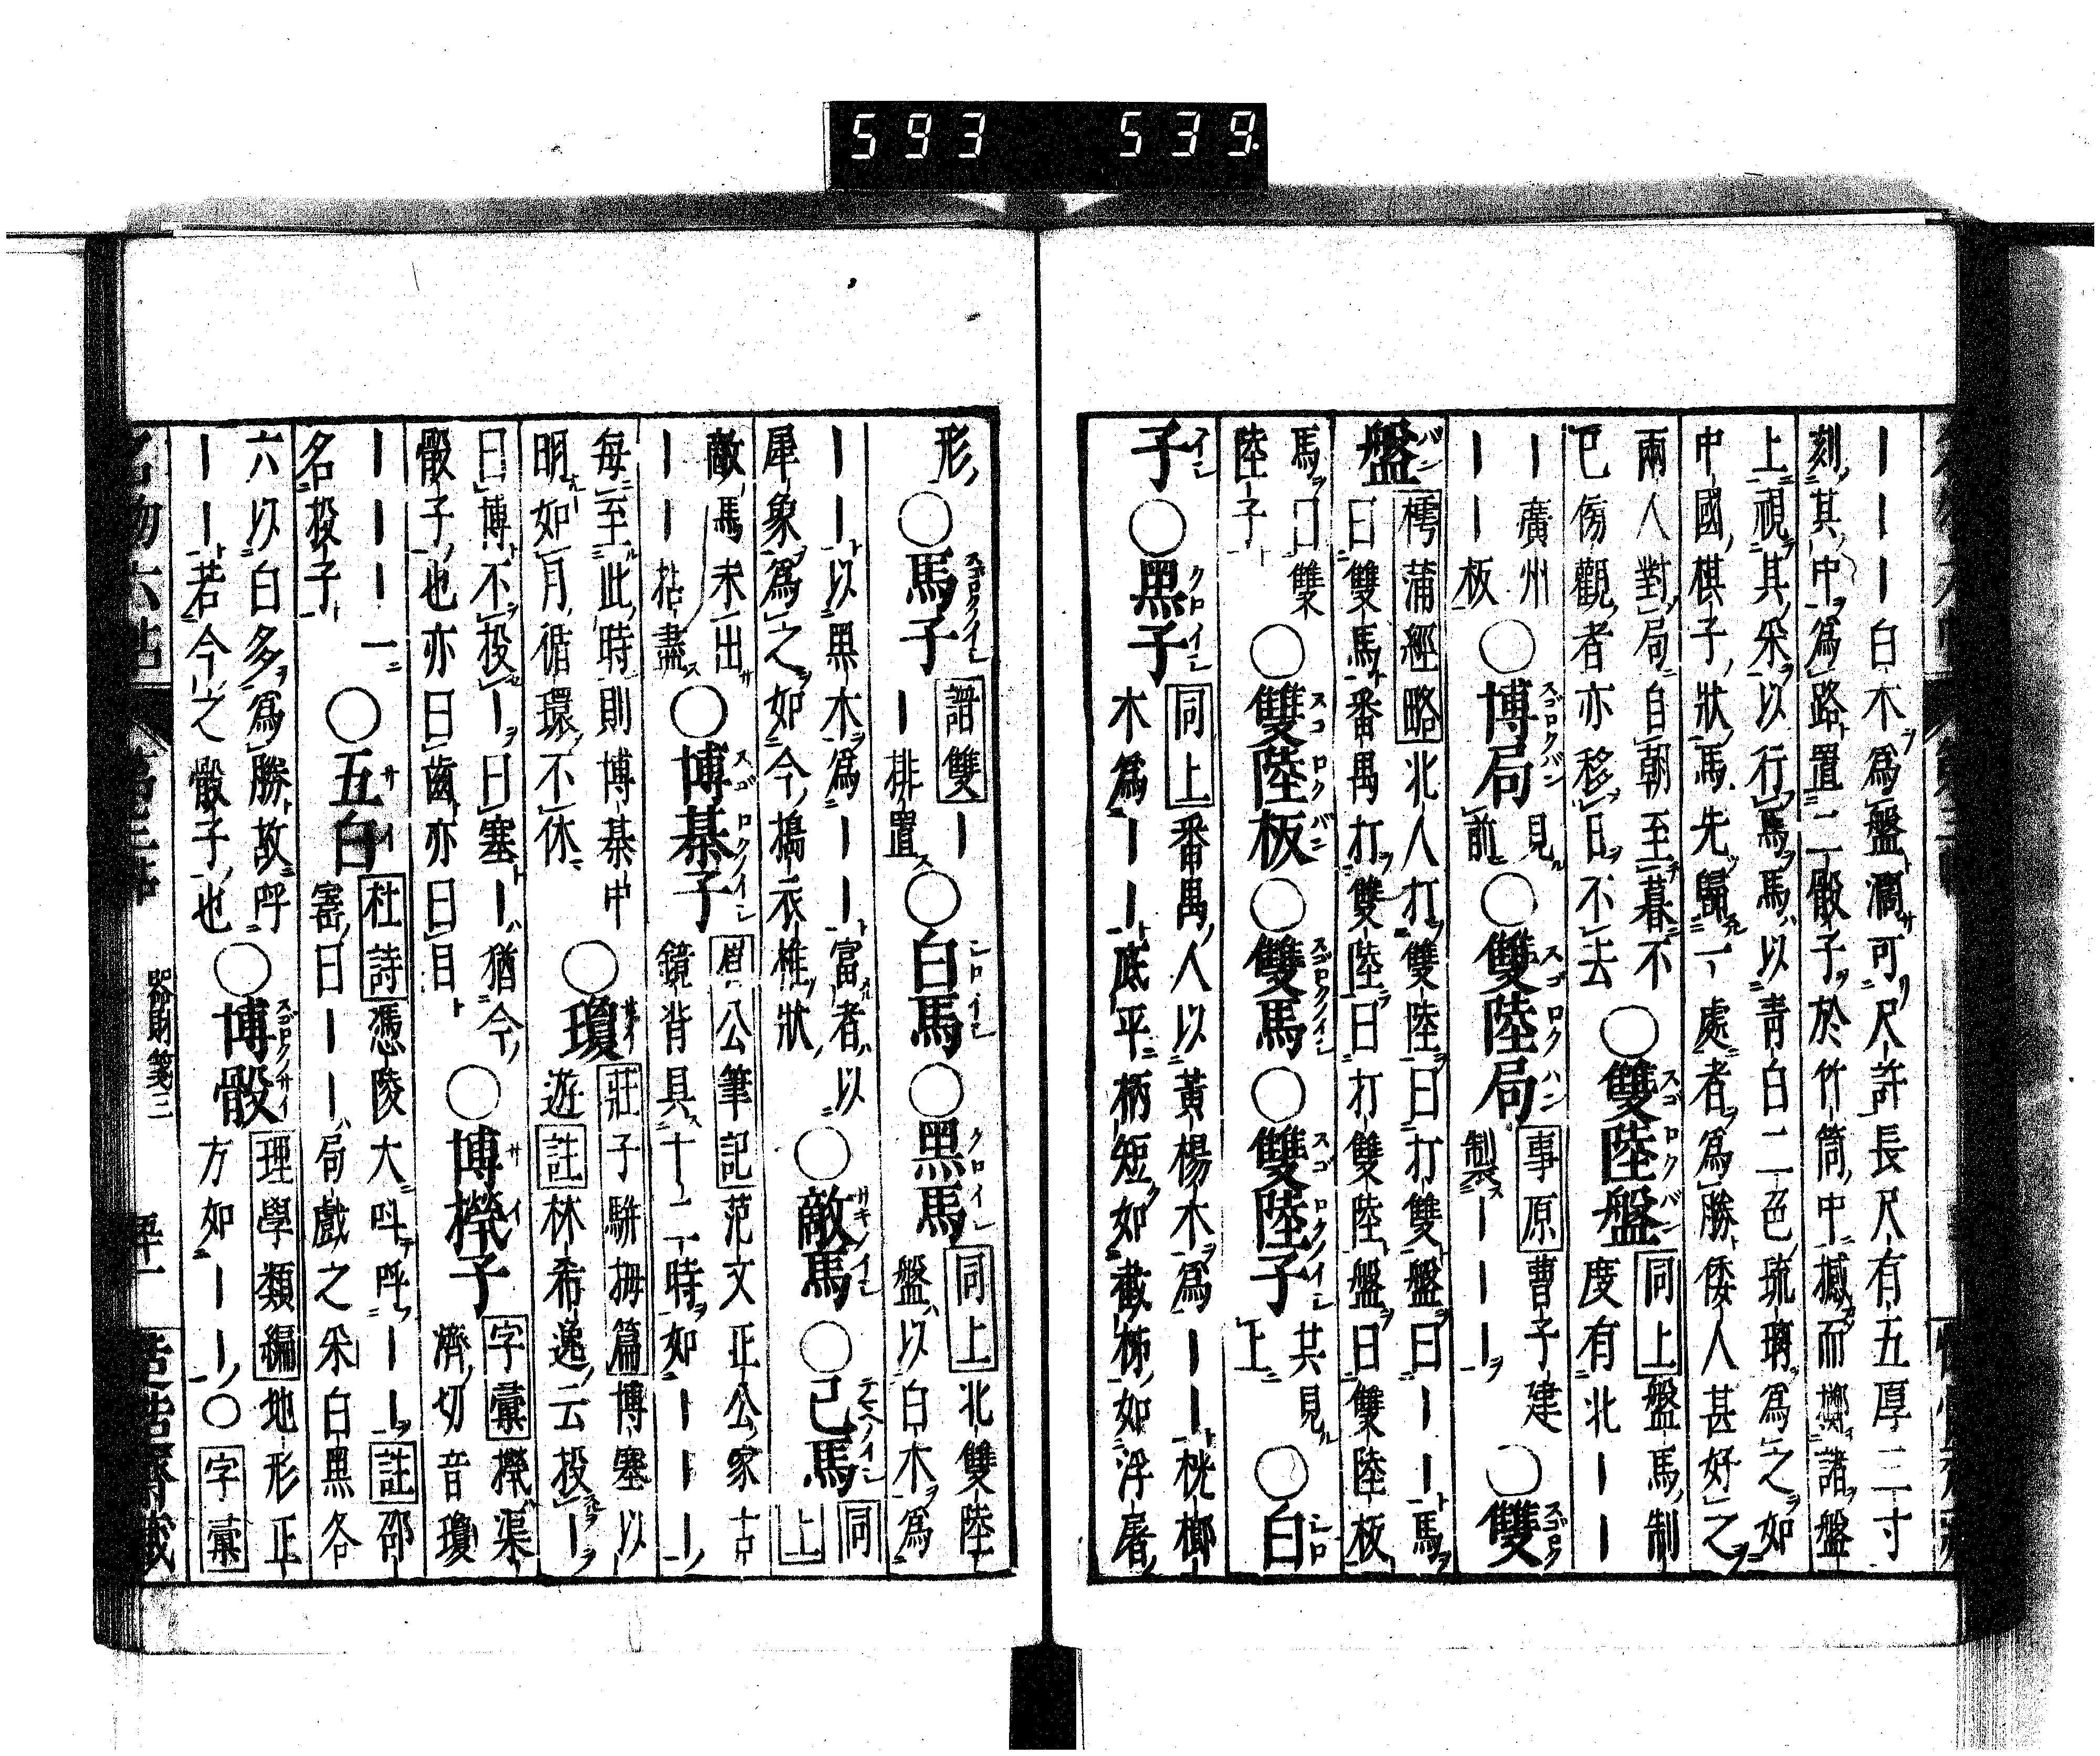 ｜｜｜白木爲盤濶可尺許長尺有五厚三寸
刻其中爲路置二骰子於竹筒中撼而擲諸盤
上視其采以行馬馬以青白二色琉璃爲之如
中國棋子狀馬先歸一處者爲勝倭人甚好之
兩人對局自朝至暮不
已傍觀者亦移日不去
○雙陸盤 同上盤馬制
度有北｜｜
｜廣州
｜｜板
○博局 見前 ○雙陸局 事原曹子建
製｜｜｜
○雙
盤 樗蒲經略北人打雙陸曰打雙盤曰｜｜馬
曰雙馬番禺打雙陸曰打雙陸盤曰雙陸板
馬曰雙
陸子
○雙陸板○雙馬○雙陸子 共見上 ○白
子○黑子 同上番禺人以黃楊木爲｜｜桄榔
木爲｜｜底平柄短如截柹如浮屠
形○馬子 譜雙｜
｜排置
○白馬○黑馬 同上北雙陸
盤以白木爲
｜｜以黑木爲｜｜富者以
犀象爲之如今搗衣椎狀
○敵馬○己馬 同上
敵馬未出
｜｜拈盡
○博棊子 眉公筆記范文正公家古
鏡背具十二時如｜｜｜
每至此時則博棊中
明如月循環不休
○瓊 莊子駢拇篇博塞以
遊註林希逸云投｜
曰博不投｜曰塞｜猶今
骰子也亦曰齒亦曰目
○博㩢子 字彙㩢渠
濟切音瓊
｜｜｜一
名投子
○五白 杜詩憑陵大呌呼｜｜註邵
寚曰｜｜局戲之采白黑各
六以白多爲勝故呼
｜｜若今之骰子也
○博骰 理學類編地形正
方如｜｜○字彙
名物六帖 第三帖 器財箋三